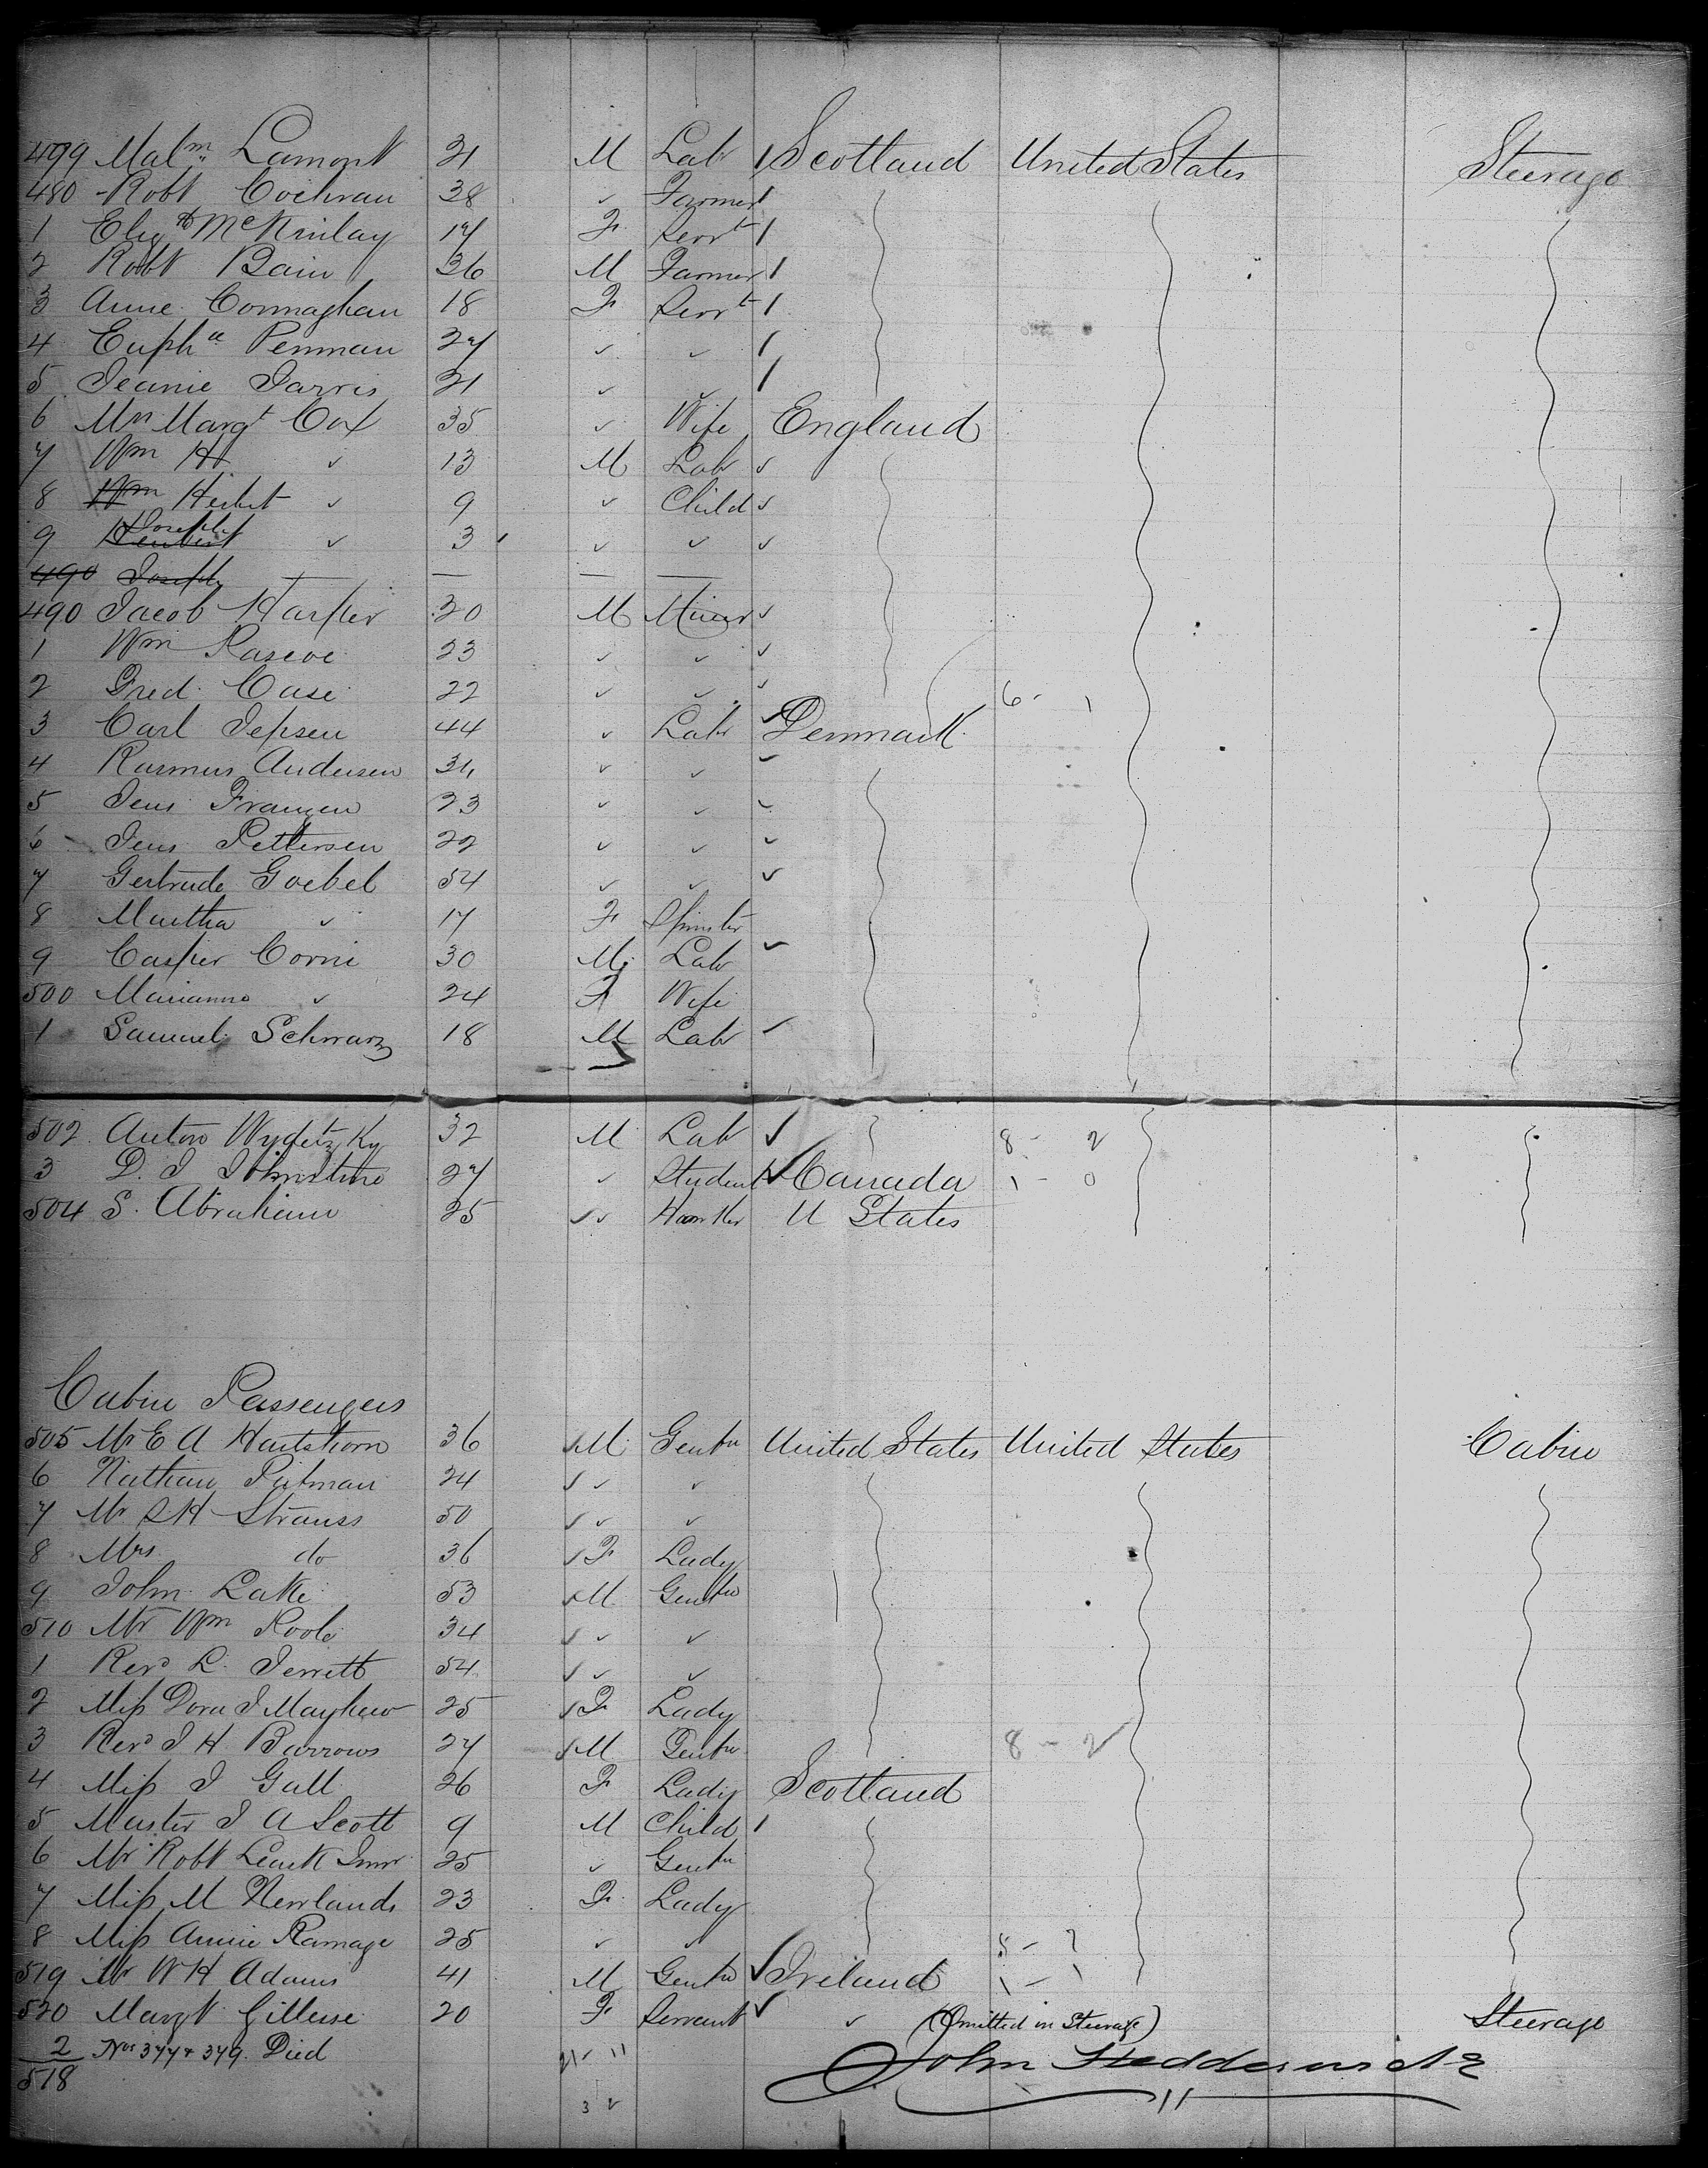 499 Malm Lamont 21 M Lab Scotland United States Steerage
480 Robt Cochran 38 ✓ Farmer
1 Elizth McKinlay 17 F Servt
2 Robt Bain 36 M Farmer
3 Anne Connaghan 18 F Servt
4 Eupha Penman 27 ✓ ✓
5 Jeanie Jarvis 21 ✓ ✓
6 Mrs Margt Cox 35 ✓ Wife England
7 Wm H ✓ 13 M Lab ✓
8 Wm Herbert ✓ 9 ✓ Child ✓
9 Herbert Joseph ✓ 3 ✓ ✓ ✓
490 Joseph — — — —
490 Jacob Harper 20 M Miner ✓
1 Wm Rascoe 23 ✓ ✓ ✓
2 Fred. Case 22 ✓ ✓ ✓ 6 - 1
3 Carl Jepsen 44 ✓ Lab ✓ Denmark
4 Rasmus Andersen 31 ✓ ✓ ✓
5 Jens Franzen 23 ✓ ✓ ✓
6 Jens Pettersen 22 ✓ ✓ ✓
7 Gertrude Goebel 54 ✓ ✓ ✓
8 Martha ✓ 17 F Spinster
9 Casper Corni 30 M Lab ✓
500 Marianne ✓ 24 F Wife
1 Samuel Schwarz 18 M Lab ✓
502 Anton 32 M Lab ✓ 8 - 2
3 D. J Johnstone 27 ✓ Student ✓ Canada 1 - 0
504 S. Abraham 25 ✓ ✓ Hawker U States
Cabin Passengers
505 Mr E A Hartshorn 36 ✓ M Gentn United States United States Cabin
6 Nathan Pitman 24 ✓ ✓ ✓
7 Mr S H Strauss 50 ✓ ✓ ✓
8 Mrs do 36 ✓ F Lady
9 John Lake 53 ✓ M Gentn
510 Mr Wm Poole 34 ✓ ✓ ✓
1 Revd L. Jewett 54 ✓ ✓ ✓
2 Miss Dora J Mayhew 25 ✓ F Lady
3 Revd J H Barrows 27 ✓ M Gentn 8 - 2
4 Miss J Gall 26 F Lady Scotland
5 Master J A Scott 9 M Child
6 Mr Robt Junr 25 ✓ Gentn
7 Miss M Newlands 23 F Lady
8 Miss Annie Ramage 25 ✓ ✓ 5 - ?
519 Mr W H Adams 41 M Gentn ✓ Ireland 1 - 1
520 Margt Gillese 20 F Servant ✓ ✓ (Omitted in Steerage) Steerage
2 Nos 377 & 379 Died 21 - 11
518
John Hedderwick
3 2